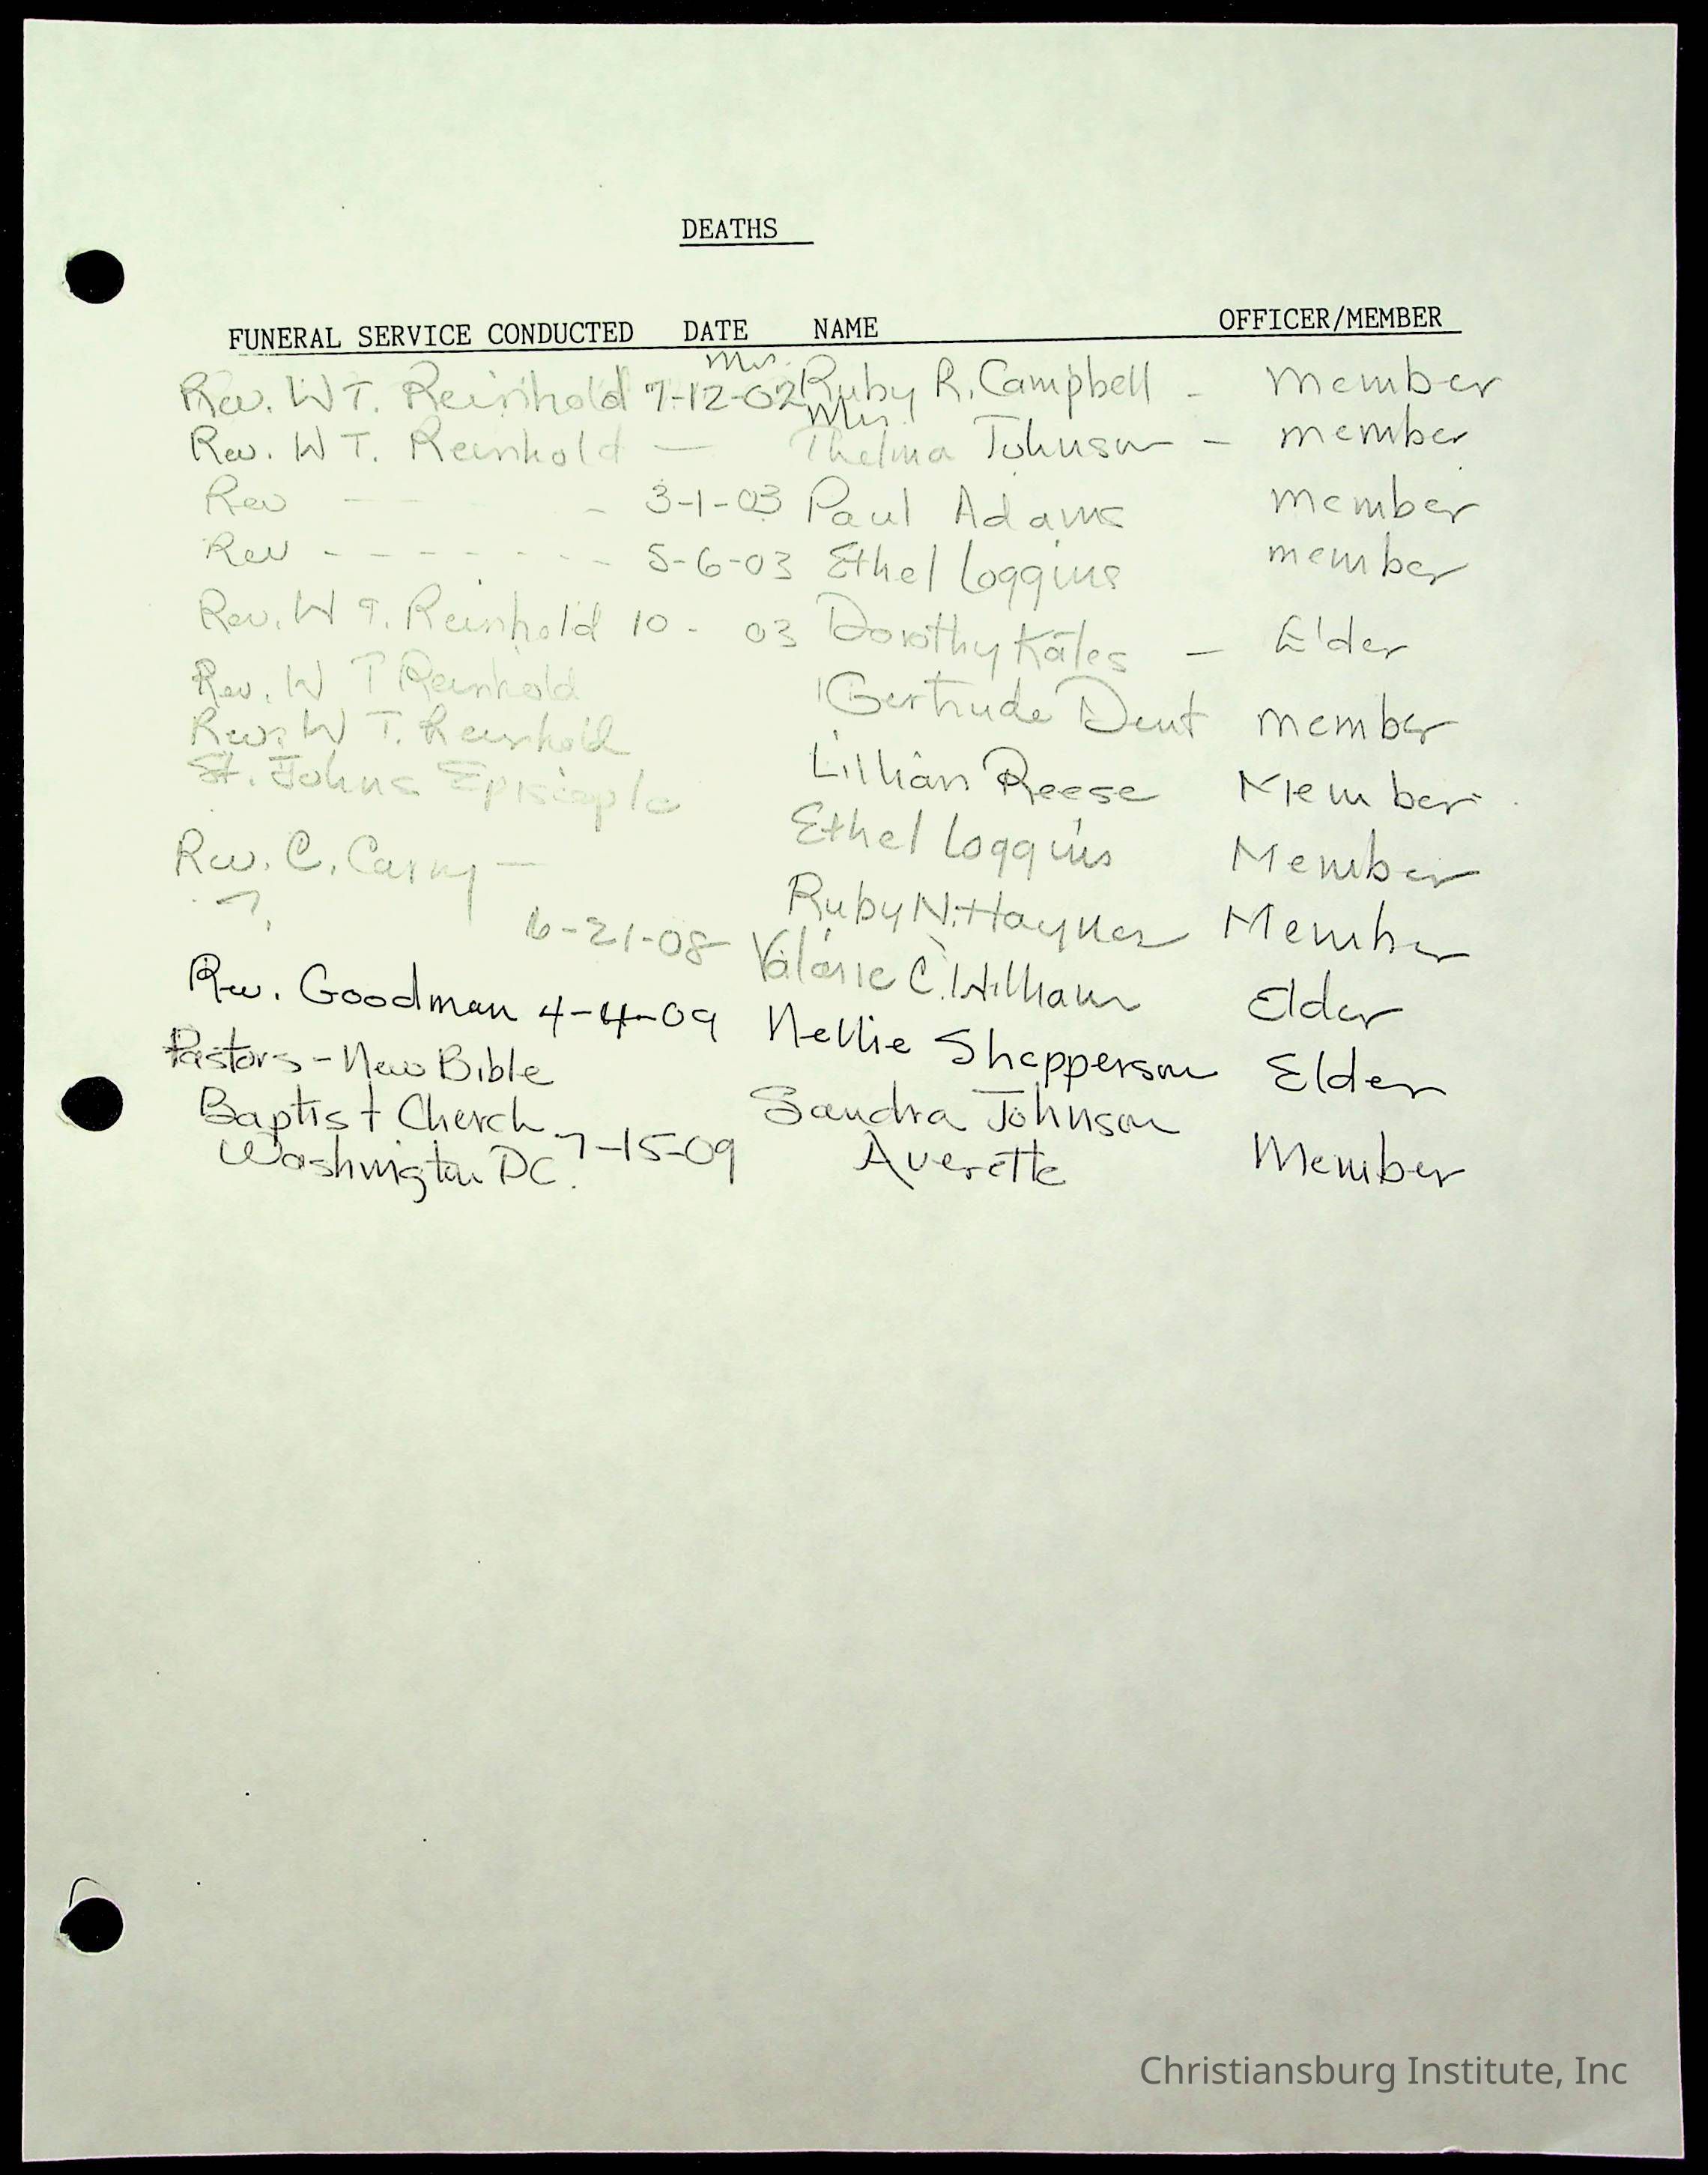 DEATHS
FUNERAL SERVICE CONDUCTED DATE NAME OFFICER/MEMBER
Mrs.
Rev. W T. Reinhold 7-12-02 Ruby R. Campbell - member
Mrs.
Rev. W T. Reinhold — Thelma Johnson - member
Rev - - - 3-1-03 Paul Adams member
Rev - - - - - - - 5-6-03 Ethel Loggins member
Rev. W T. Reinhold 10 - 03 Dorothy Kates - Elder
Rev. W T Reinhold Gertrude Dent member
Rev. W T. Reinhold Lillian Reese Member
St. Johns Ethel Loggins Member
Rev. C. — Ruby N. Member
?
6-21-08 Valerie C. Elder
Rev. Goodman 4-4-09 Nellie Shepperson Elder
Pastors - New Bible
Baptist Cherch Sandra Johnson
Washington DC. 7-15-09 Averette Member
Christiansburg Institute, Inc